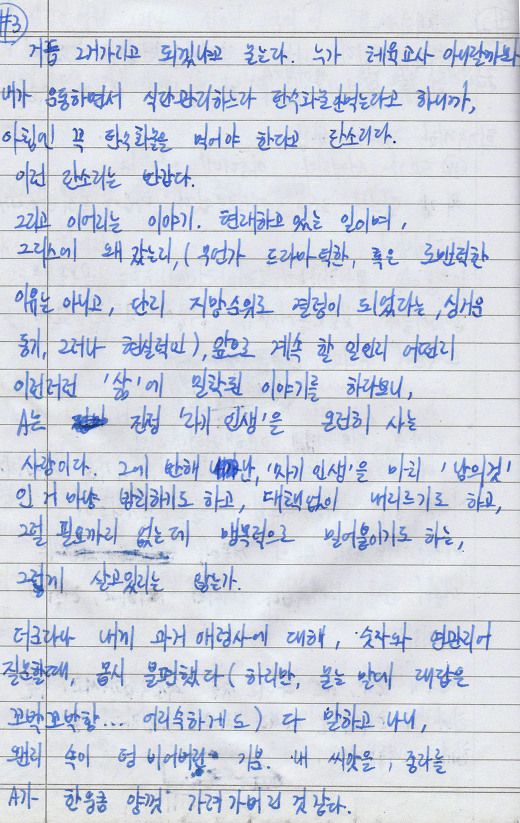 #3
거듭 그거가리고 되겠냐고 묻는다. 누가 체육교사 아니랄까봐
내가 운동하면서 식단관리하느라 탄수화물안먹는다고 하니까,
아침엔 꼭 탄수화물을 먹어야 한다고 잔소리다.
이런 잔소리는 반갑다.
그리고 이어지는 이야기. 현재하고 있는 일이며,
그리스에 왜 갔는지, (무언가 드라마틱한, 혹은 로맨틱한
이유는 아니고, 단지 지망순위로 결정이 되었다는, 싱거운
동기, 그러나 현실적인), 앞으로 계속 할 일인지 어떤지
이런저런 '삶'에 밀착된 이야기를 하다보니,
A는 진정 '자기 인생'을 온전히 사는
사람이다. 그에 반해 난, '자기 인생'을 마치 '남의것'
인 거 마냥 방치하기도 하고, 대책없이 내지르기도 하고,
그럴 필요까지 없는데 맹목적으로 밀어붙이기도 하는,
그렇게 살고있지는 않는가.
더구다나 내게 과거 애정사에 대해, 숫자와 연관지어
질문할때, 몹시 불편했다 (하지만, 묻는 말에 대답은
꼬박꼬박함... 어리숙하게도) 다 말하고 나니,
왠지 속이 텅 비어버린 기분. 내 씨앗을, 종자를
A가 한웅큼 양껏 가져가버린 것 같다.